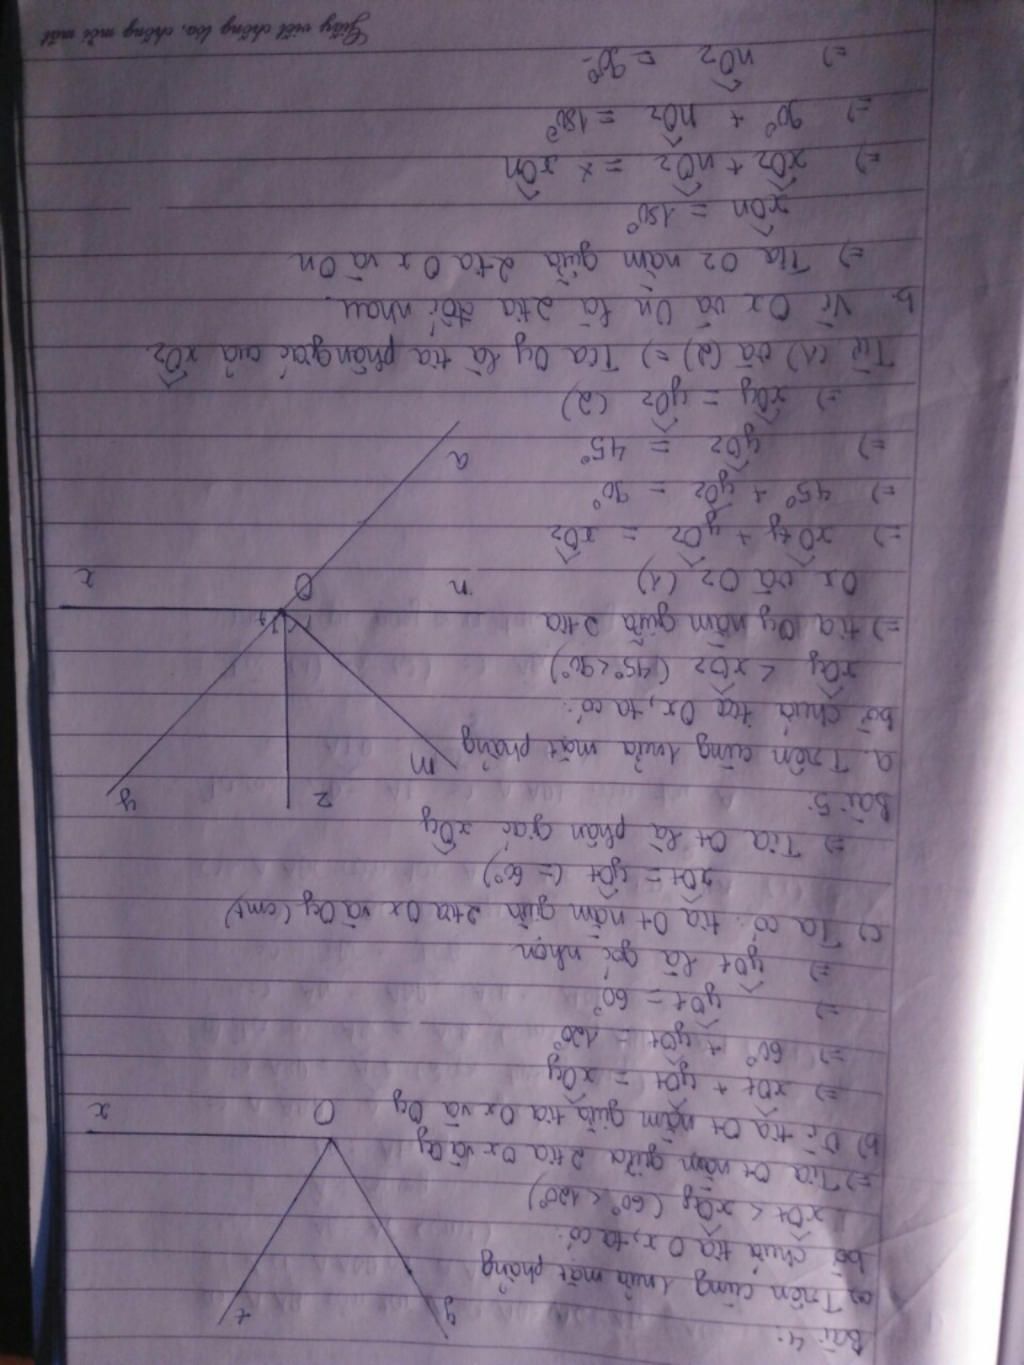 Bài 4:
a) Trên cùng 1 nửa mặt phẳng
bờ chứa tia Ox, ta có:
xOt < xOy (60° < 120°)
=> Tia Ot nằm giữa 2 tia Ox và Oy
b) Vì tia Ot nằm giữa tia Ox và Oy
=> xOt + yOt = xOy
=> 60° + yOt = 120°
=> yOt = 60°
=> yOt là góc nhọn
c) Ta có: tia Ot nằm giữa 2 tia Ox và Oy (cmt)
xOt = yOt (= 60°)
=> Tia Ot là phân giác xOy
y
t
O
x
Bài 5:
a. Trên cùng 1 nửa mặt phẳng
bờ chứa tia Ox, ta có:
xOy < xOz (45° < 90°)
=> tia Oy nằm giữa 2 tia
Ox và Oz (1)
=> xOy + yOz = xOz
=> 45° + yOz = 90°
=> yOz = 45°
=> xOy = yOz (2)
Từ (1) và (2) => Tia Oy là tia phân giác của xOz
m
z
y
n
O
x
a
b. Vì Ox và On là 2 tia đối nhau.
=> Tia Oz nằm giữa 2 tia Ox và On
xOn = 180°
=> xOz + nOz = x xOn
=> 90° + nOz = 180°
=> nOz = 90°
Giấy viết chống lóa, chống mỏi mắt